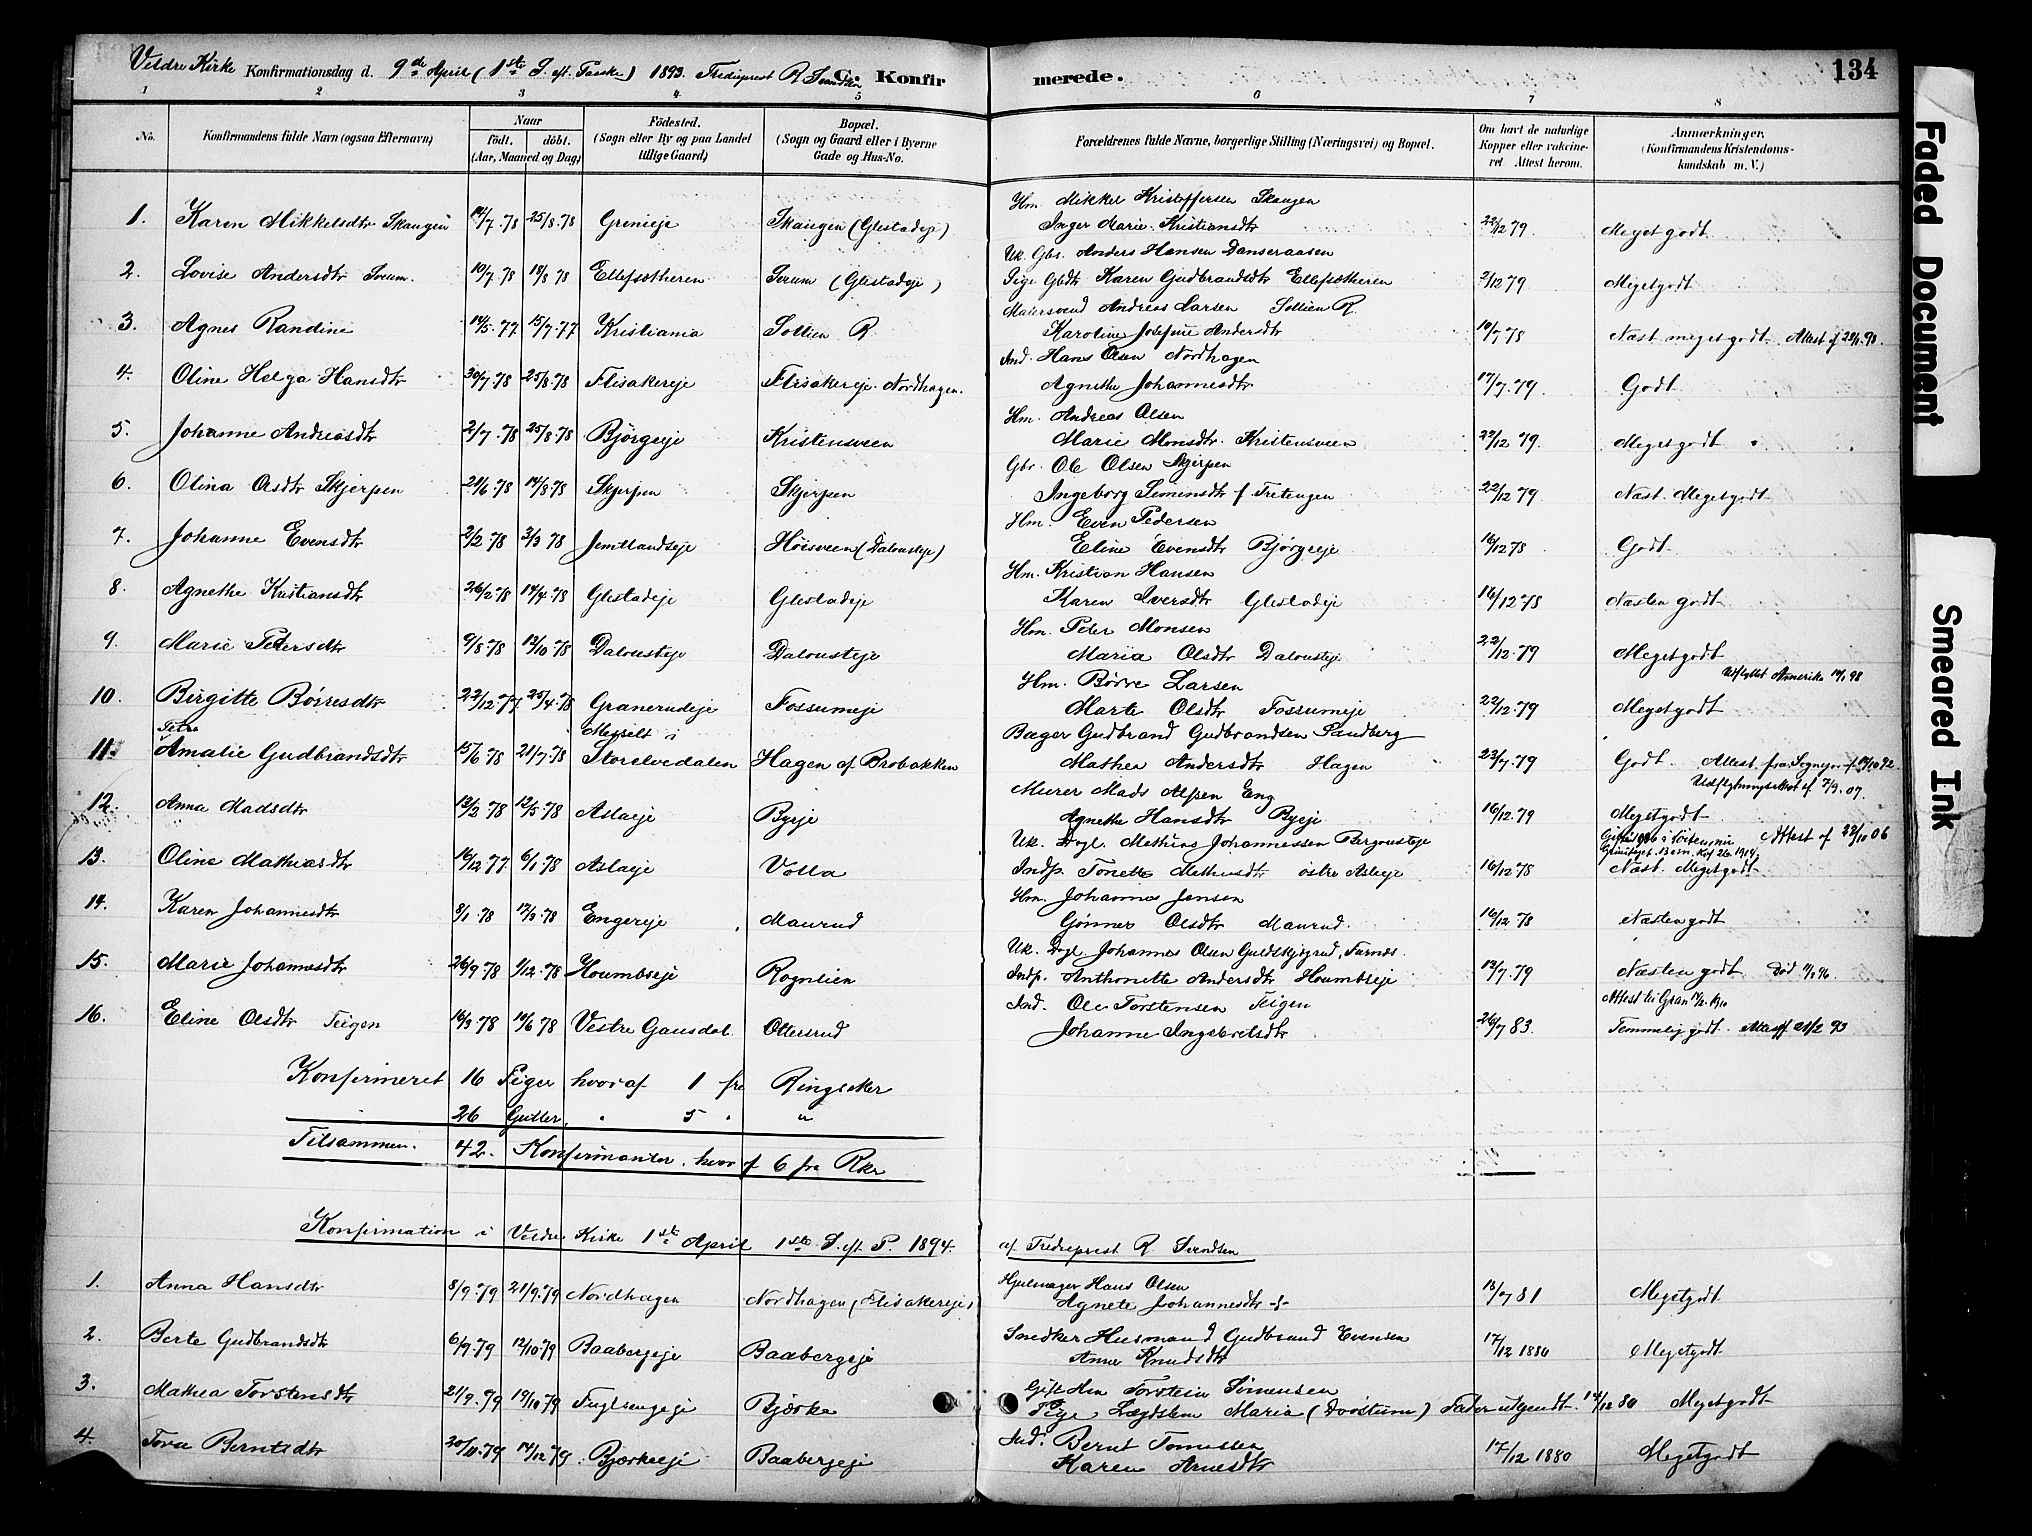 Veldre Kirke Konfirmationsdag d. 9de April (1ste S. eft. Paaske) 1893. Tredieprest R Svendsen C. Konfirmerede. 134
1 2 3 4 5 6 7 8
No. Konfirmandens fulde Navn (ogsaa Efternavn) Naar födt. döbt. (Aar, Maaned og Dag) Födested. (Sogn eller By og paa Landet tillige Gaard) Bopæl. (Sogn og Gaard eller i Byerne Gade og Hus-No. Forældrenes fulde Navne, borgerlige Stilling (Næringsvei) og Bopæl. Om havt de naturlige Kopper eller vaccineret Attest herom. Anmærkninger. (Konfirmandens Kristendomskundskab m. V.)
Hm. Mikkel Kristoffersen Skaugen
1. Karen Mikkelsdtr Skaugen 14/7.78 25/8.78 Grinieje Skaugen (Glestadeje) Inger Marie Kristiansdtr 22/12 79 Meget godt
Uk. Gbr. Anders Hansen Danseraasen
2. Lovise Andersdtr Sveum. 10/7.78 18/8 78 Ellefsætheren Sveum (Glestadeje) Pige Gbdtr Karen Gudbrandsdtr Ellefsætheren 2/12 79 Megetgodt
Malersvend Andreas Larsen Sollien R.
3. Agnes Randine 14/5.77 15/7.77 Kristiania Sollien R Karoline Josefine Andersdtr 19/7 78 Næst. megetgodt. Attest
Ind. Hans Olsen Nordhagen
4. Oline Helga Hansdtr 30/7.78 25/8.78 Flisakereje Flisakereje. Nordhagen. Agnethe Johannesdtr 17/7.79 Godt
Hm. Andreas Olsen
5. Johanne Andreasdtr 2/7.78 25/8.78 Björgeeje Kristensveen Marie Monsdtr. Kristensveen 22/12 79. Megetgodt
Gbr. Ole Olsen Skjerpen
6. Olina Olsdtr Skjerpen 21/6.78 14/8.78 Skjerpen Skjerpen Ingeborg Simensdtr f. Tretengen 22/12 79 Næst. Megetgodt
Hm. Even Pedersen
7. Johanne Evensdtr 2/2 78 3/3 78 Jemtlandseje Höisveen (Dalousteje) Eline Evensdtr Björgeeje 16/12 78 Godt
Hm. Kristian Hansen
8. Agnethe Kristiansdtr 26/2 78 14/4.78 Glestadeje Glestadeje Karen Iversdtr Glestadeje 16/12 78 Næsten godt
Hm. Peter Monsen
9. Marie Petersdtr 9/8.78 13/10.78 Dalousteje Dalousteje Maria Olsdtr Dalousteje 22/12.79 Megetgodt
Hm. Börre Larsen Udflyttet Amerika 98
10. Birgitte Börresdtr 22/12.77 25/4.78 Granerudeje Fossumeje Marte Olsdtr Fossumeje 22/12.79 Megetgodt
Petra Messelt i Bager Gudbrand Gudbrandsen Sandberg
11. Amalie Gudbrandsdtr 15/6.78 21/7.78 Storelvedalen Hagen af Brobakken Mathea Andersdtr Hagen 23/7.79 Godt. Attest fra Sognepr. f. 10 92
Murer Mads Alfsen Eng Udflytningsattest af 7/3.07.
12. Anna Madsdtr 12/2 78 12/5.78 Aslaeje Byeje Agnethe Hansdtr Byeje 16/12.79 Megetgodt
Uk. Dagl. Mathias Johannessen Bergousteje Attest af 22/10 06
13. Oline Mathiasdtr 16/12 77 6/1 78 Aslaeje Volla Indp. Tonette Mathiasdtr östre Aslaeje 16/12 78 Næst. Megetgodt
Hm. Johannes Jensen
14. Karen Johannesdtr 3/1.78 17/3.78 Engereje Maurud Gönner Olsdtr Maurud 16/12 78 Næsten godt
Uk. Dagl. Johannes Olsen Furnes
15. Marie Johannesdtr 26/9.78 1/12.78 Houmbseje Rognlien Indp. Anthonette Andersdtr Houmbseje 13/7.79 Næsten godt Död
Ind. Ole Torstensen Teigen Attest til Gran
16. Eline Olsdtr Teigen 16/3.78 10/6 78 Vestre Gausdal. Ottesrud Johanne Ingebretsdtr 26/7 83. Temmelig godt. Attest 21/2 93
Konfirmeret 16 Piger hvoraf 1 fra Ringsaker
26 Gutter. " 5 " "
Tilsammen. 42. Konfirmanter, hvoraf 6 fra Rkr
Konfirmation i Veldre Kirke 1ste April 1ste S. eft. P. 1894. af Tredieprest R Svendsen
Hjulmager Hans Olsen
1. Anna Hansdtr 8/9.79 21/9.79 Nordhagen Nordhagen (Flisakereje) Agnete Johannesdtr 13/7 81 Megetgodt
Snedker Husmand Gudbrand Evensen
2. Berte Gudbrandsdtr 6/9.79 12/10.79 Baabergeje Baabergeje Anne Knudsdtr 17/12 1880 Megetgodt
Gift Hm Torstein Simensen
3. Mathea Torstensdtr 21/9.79 19/10.79 Fuglsengeje Bjørke Pige Lægdslem Maria 14/12 80 Megetgodt
Ind. Bernt Tomassen
4. Tova Berntsdtr 20/10.79 14/12 79 Bjørkeeje Baabergeje Karen Arnesdtr 17/12 1880 Megetgodt
Faded Document
Smeared Ink